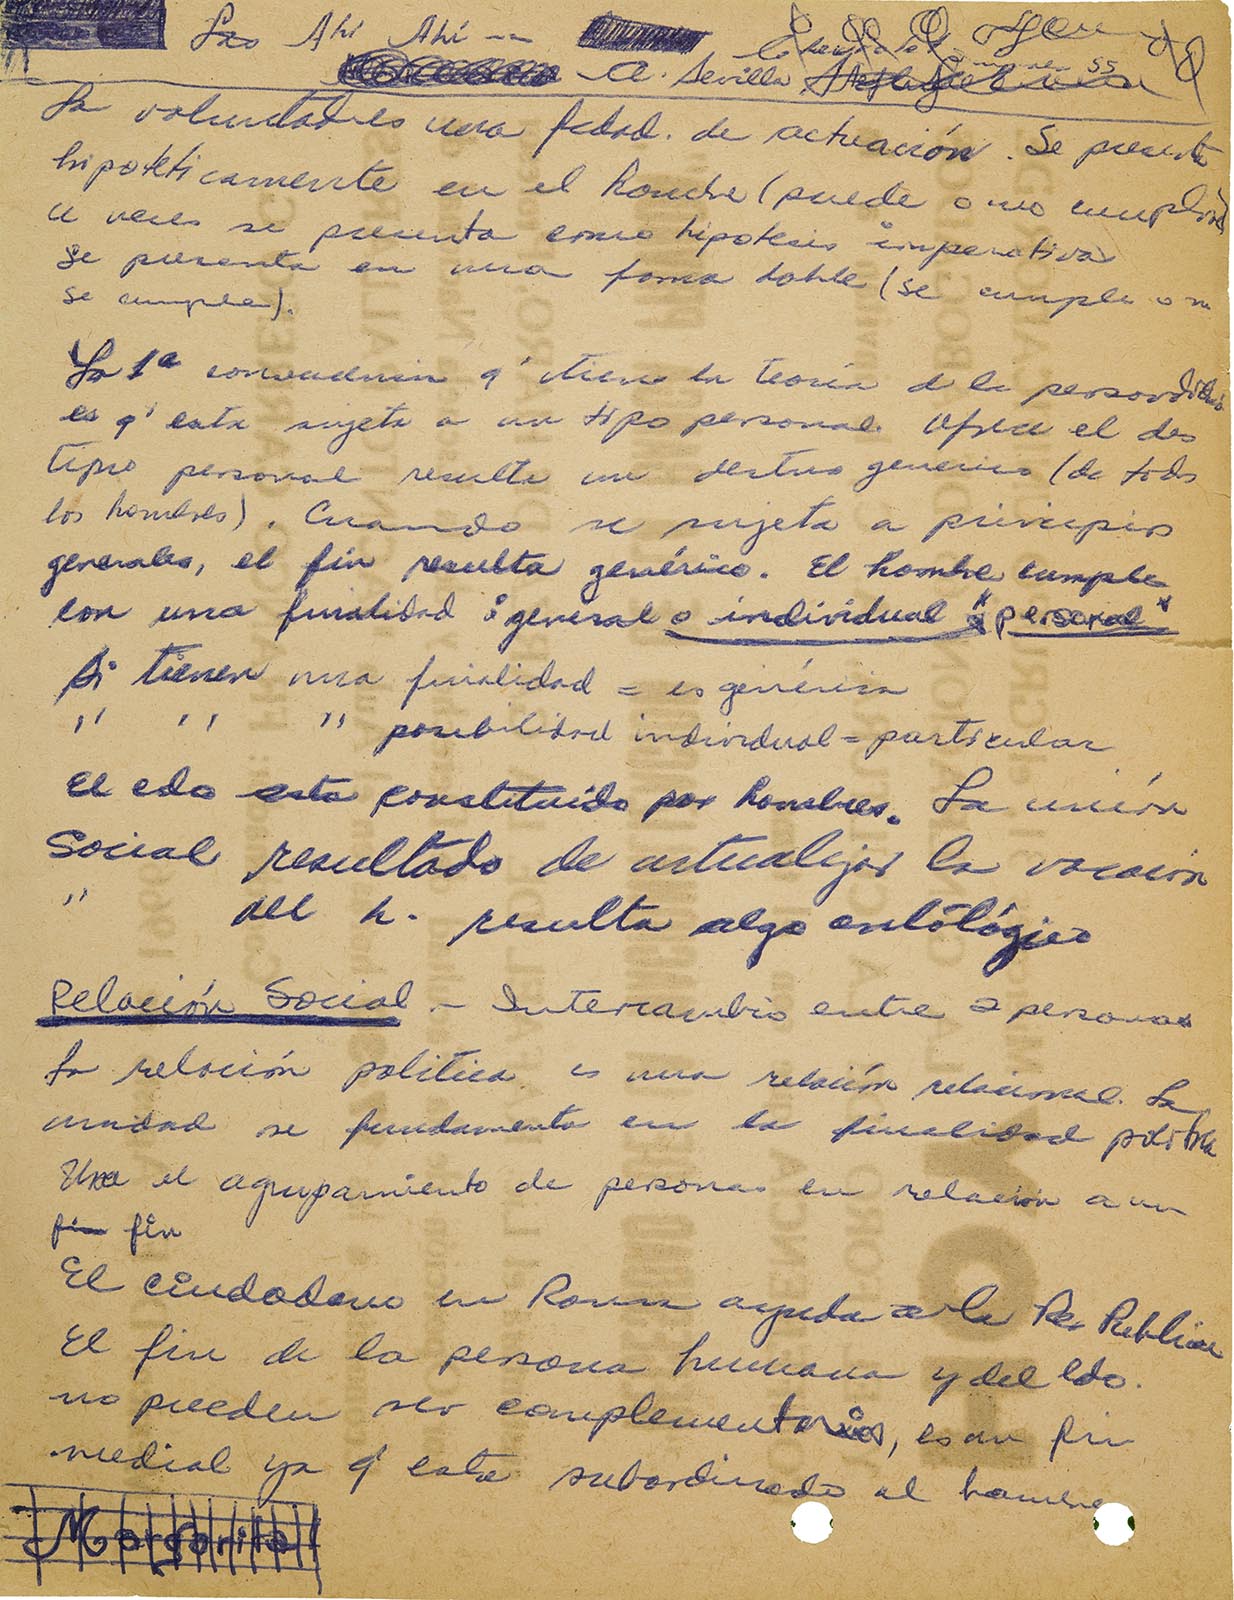 Ahi Ahi
A. Sevilla
La voluntad es una fcdad. de actuación. Se presenta
hipoteticamente en el hombre (puede o no cumplirse)
a veces se presenta como hipotesis imperativa
se presenta en una foma doble (se cumple o no
se cumple).
La 1ª consecuencia q' tiene la teoria d la
es q' esta sujeta a un tipo personal. Ofrece el des
tipo personal resulta un destino generico (de todos
los hombres). Cuando se sujeta a principios
generales, el fin resulta genérico. El hombre cumple
con una finalidad general o individual "personal"
Si tienen una finalidad = es genérica
" " " posibilidad individual = particular
El edo esta constituido por hombres. La unión
Social resultado de actualizar la vocación
" del h. resulta algo ontológico
Relación Social - Intercambio entre 2 personas
La relación politica es una relación relacional. La
unidad se fundamenta en la finalidad politica
Una el agrupamiento de personas en relación a un
fin fin
El ciudadano en Roma ayuda a la Res Publica
El fin de la persona humana y del Edo.
no pueden ser complementarios, es un fin
medial ya q' esta subordinado al hombre
Margarita